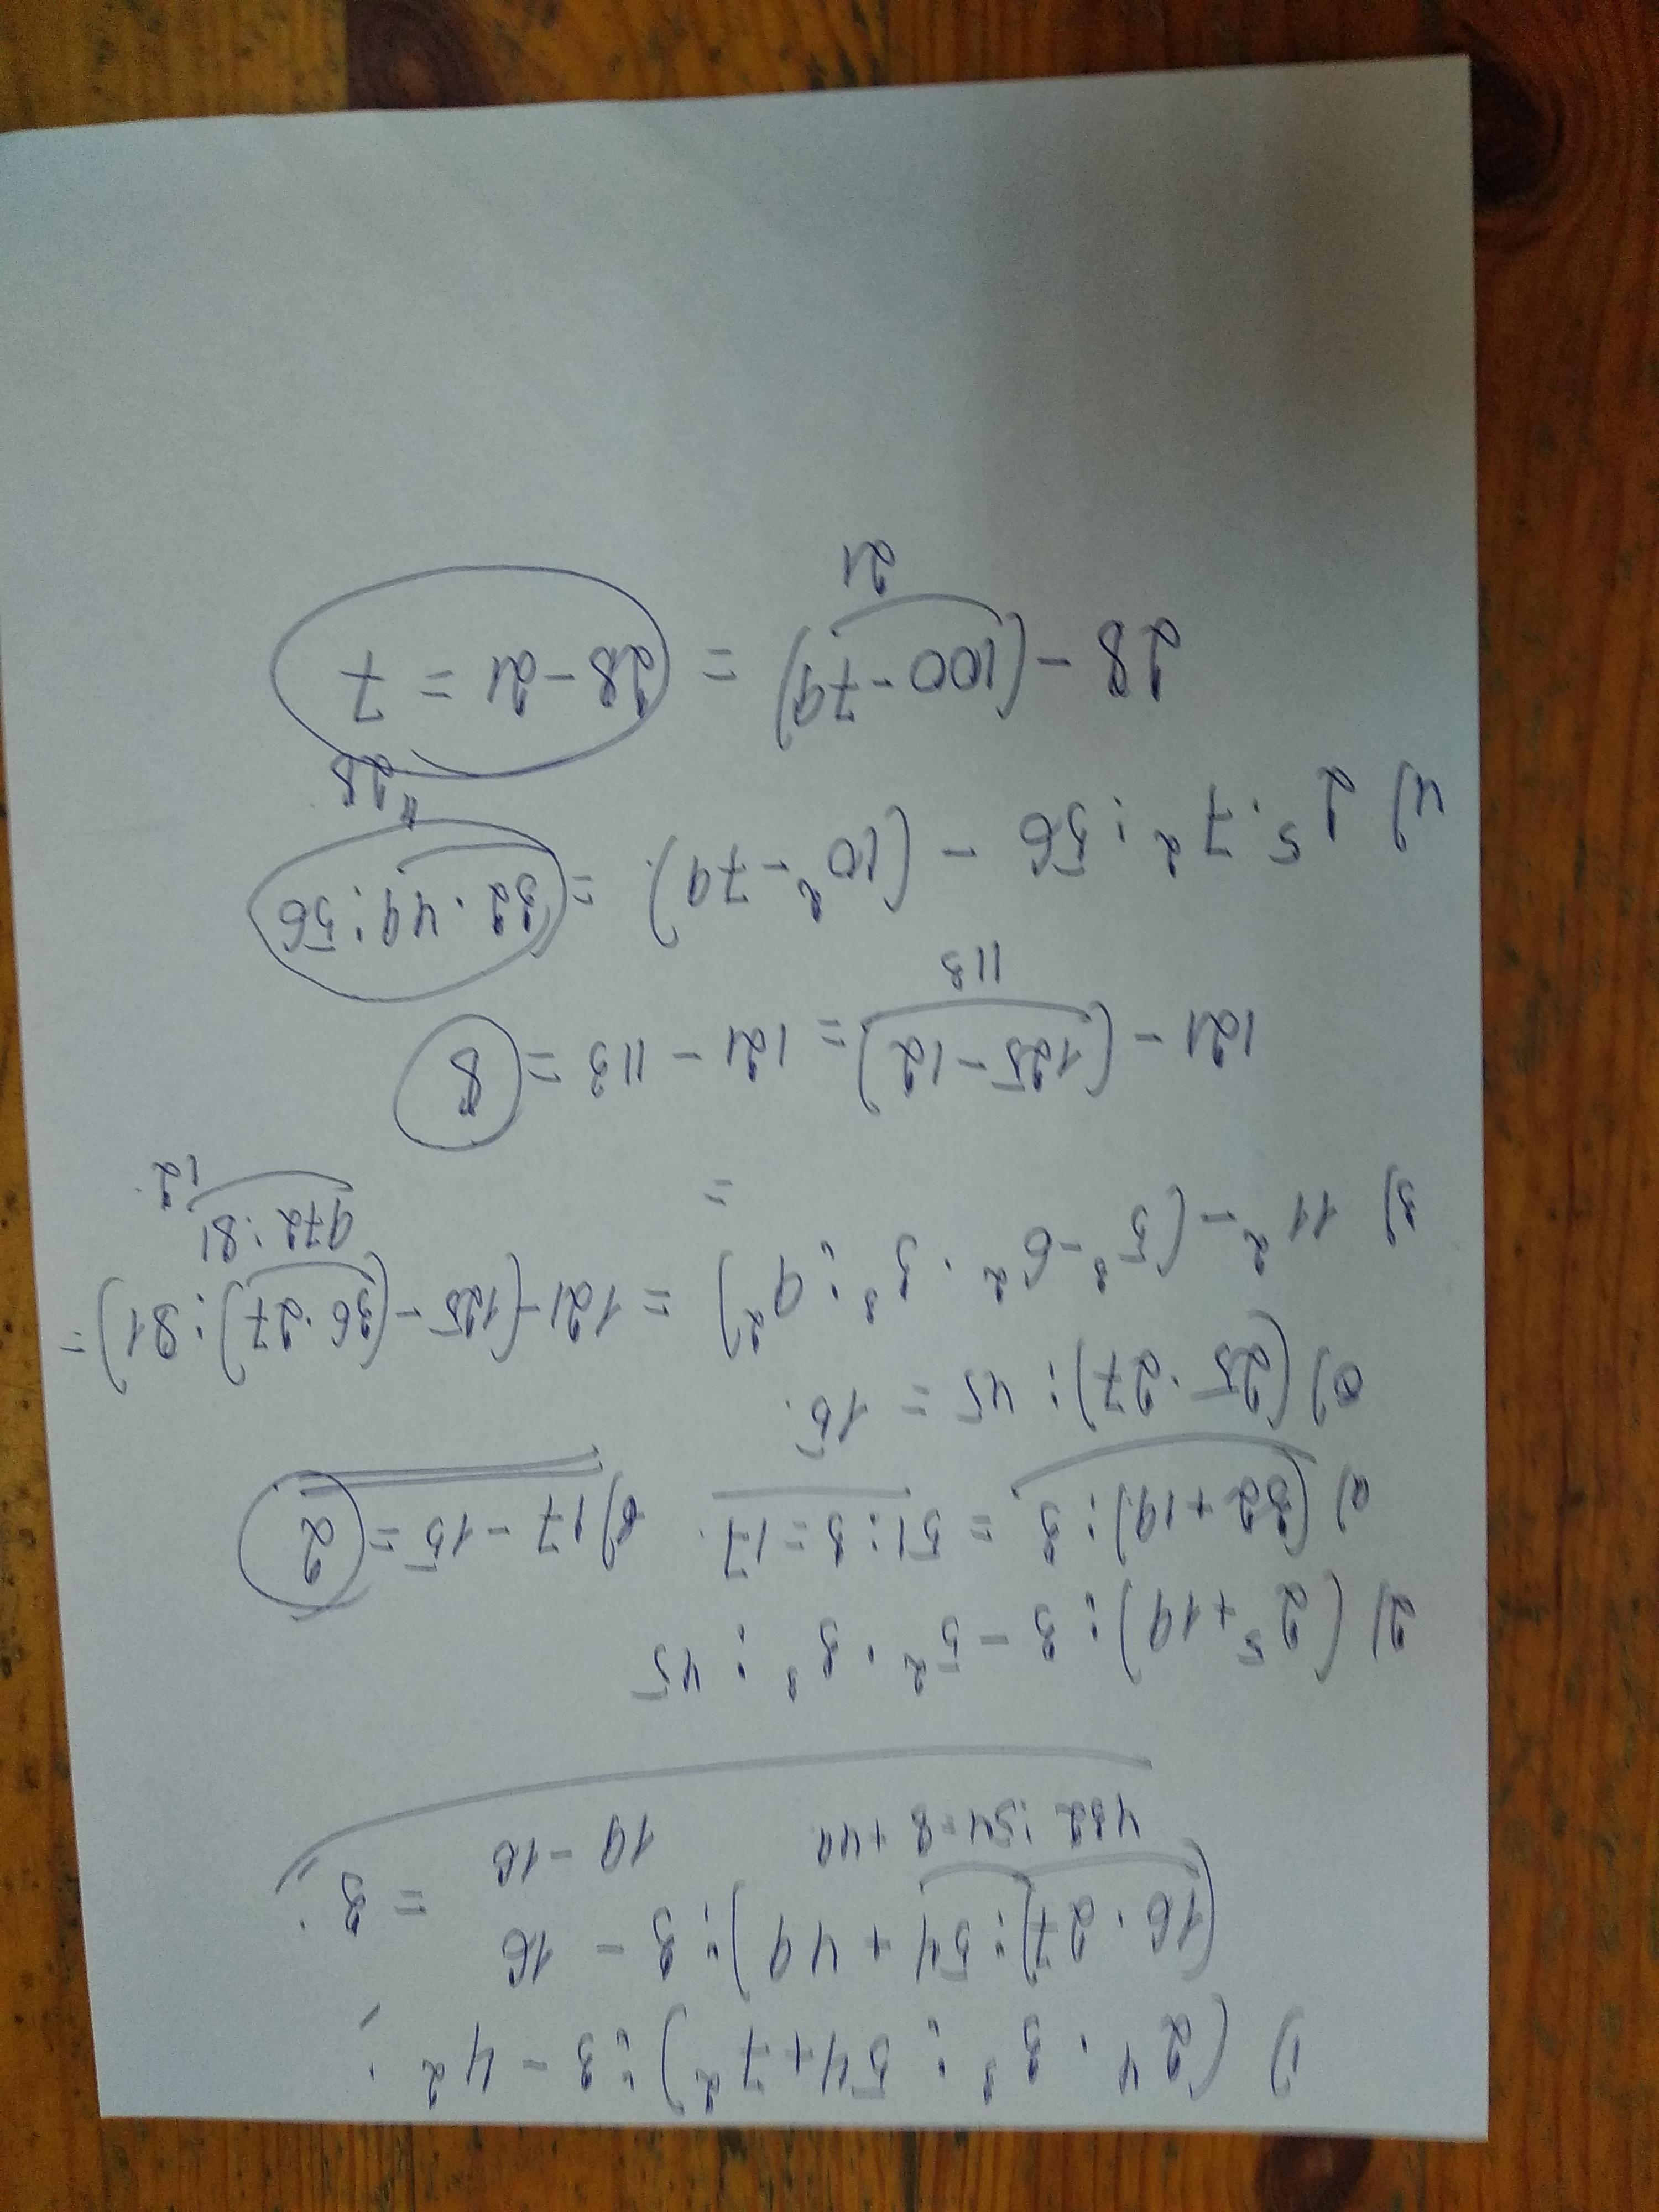 1) (2⁴ · 3³ : 54 + 7²) : 3 - 4² :
(16 · 27) : 54 + 49) : 3 - 16 = 3.
432 : 54 = 8 + 49 19 - 16
2) (2⁵ + 19) : 3 - 5² · 3³ : 45
a) (32 + 19) : 3 = 51 : 3 = 17. в) 17 - 15 = 2
б) (25 · 27) : 45 = 15.
3) 11² - (5³ - 6² · 3³ : 9²) = 121 - (125 - (36 · 27) : 81) =
=
972 : 81
12
121 - (125 - 12) = 121 - 113 = 8
113
4) 2⁵ · 7² : 56 - (10² - 79) = 32 · 49 : 56
"
28
28 - (100 - 79) = 28 - 21 = 7
21